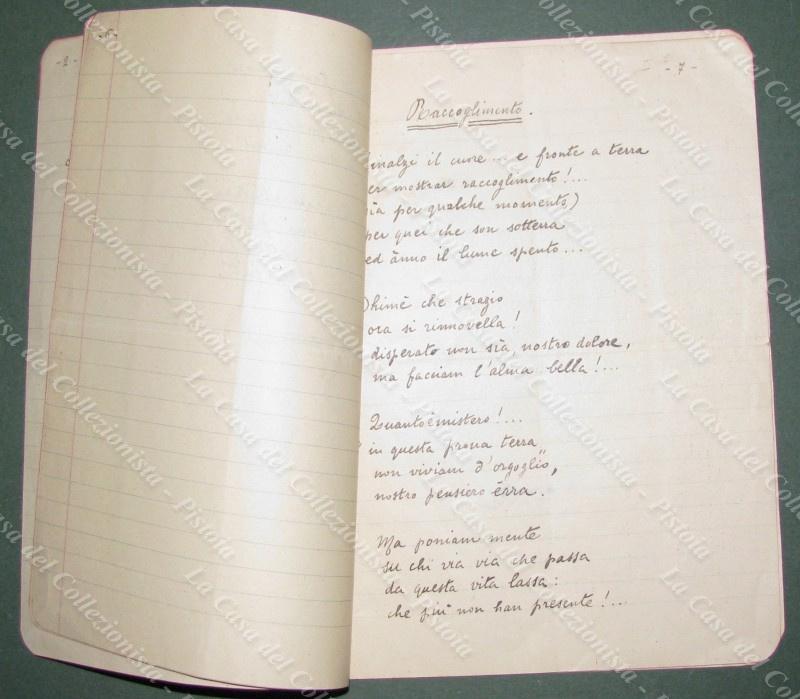 -2-
-7-
Raccoglimento.
inalzi il cuore... e fronte a terra
er mostrar raccoglimento!...
ia per qualche momento)
per quei che son sotterra
ed ànno il lume spento...
Ohimè che strazio
ora si rinnovella!
disperato non sia, nostro dolore,
ma facciam l'alma bella!...
Quanto è mistero!...
in questa prona terra
non viviam d'orgoglio,
nostro pensiero èrra.
Ma poniam mente
su chi via via che passa
da questa vita lassa:
che più non han presente!...
La Casa del Collezionista - Pistoia